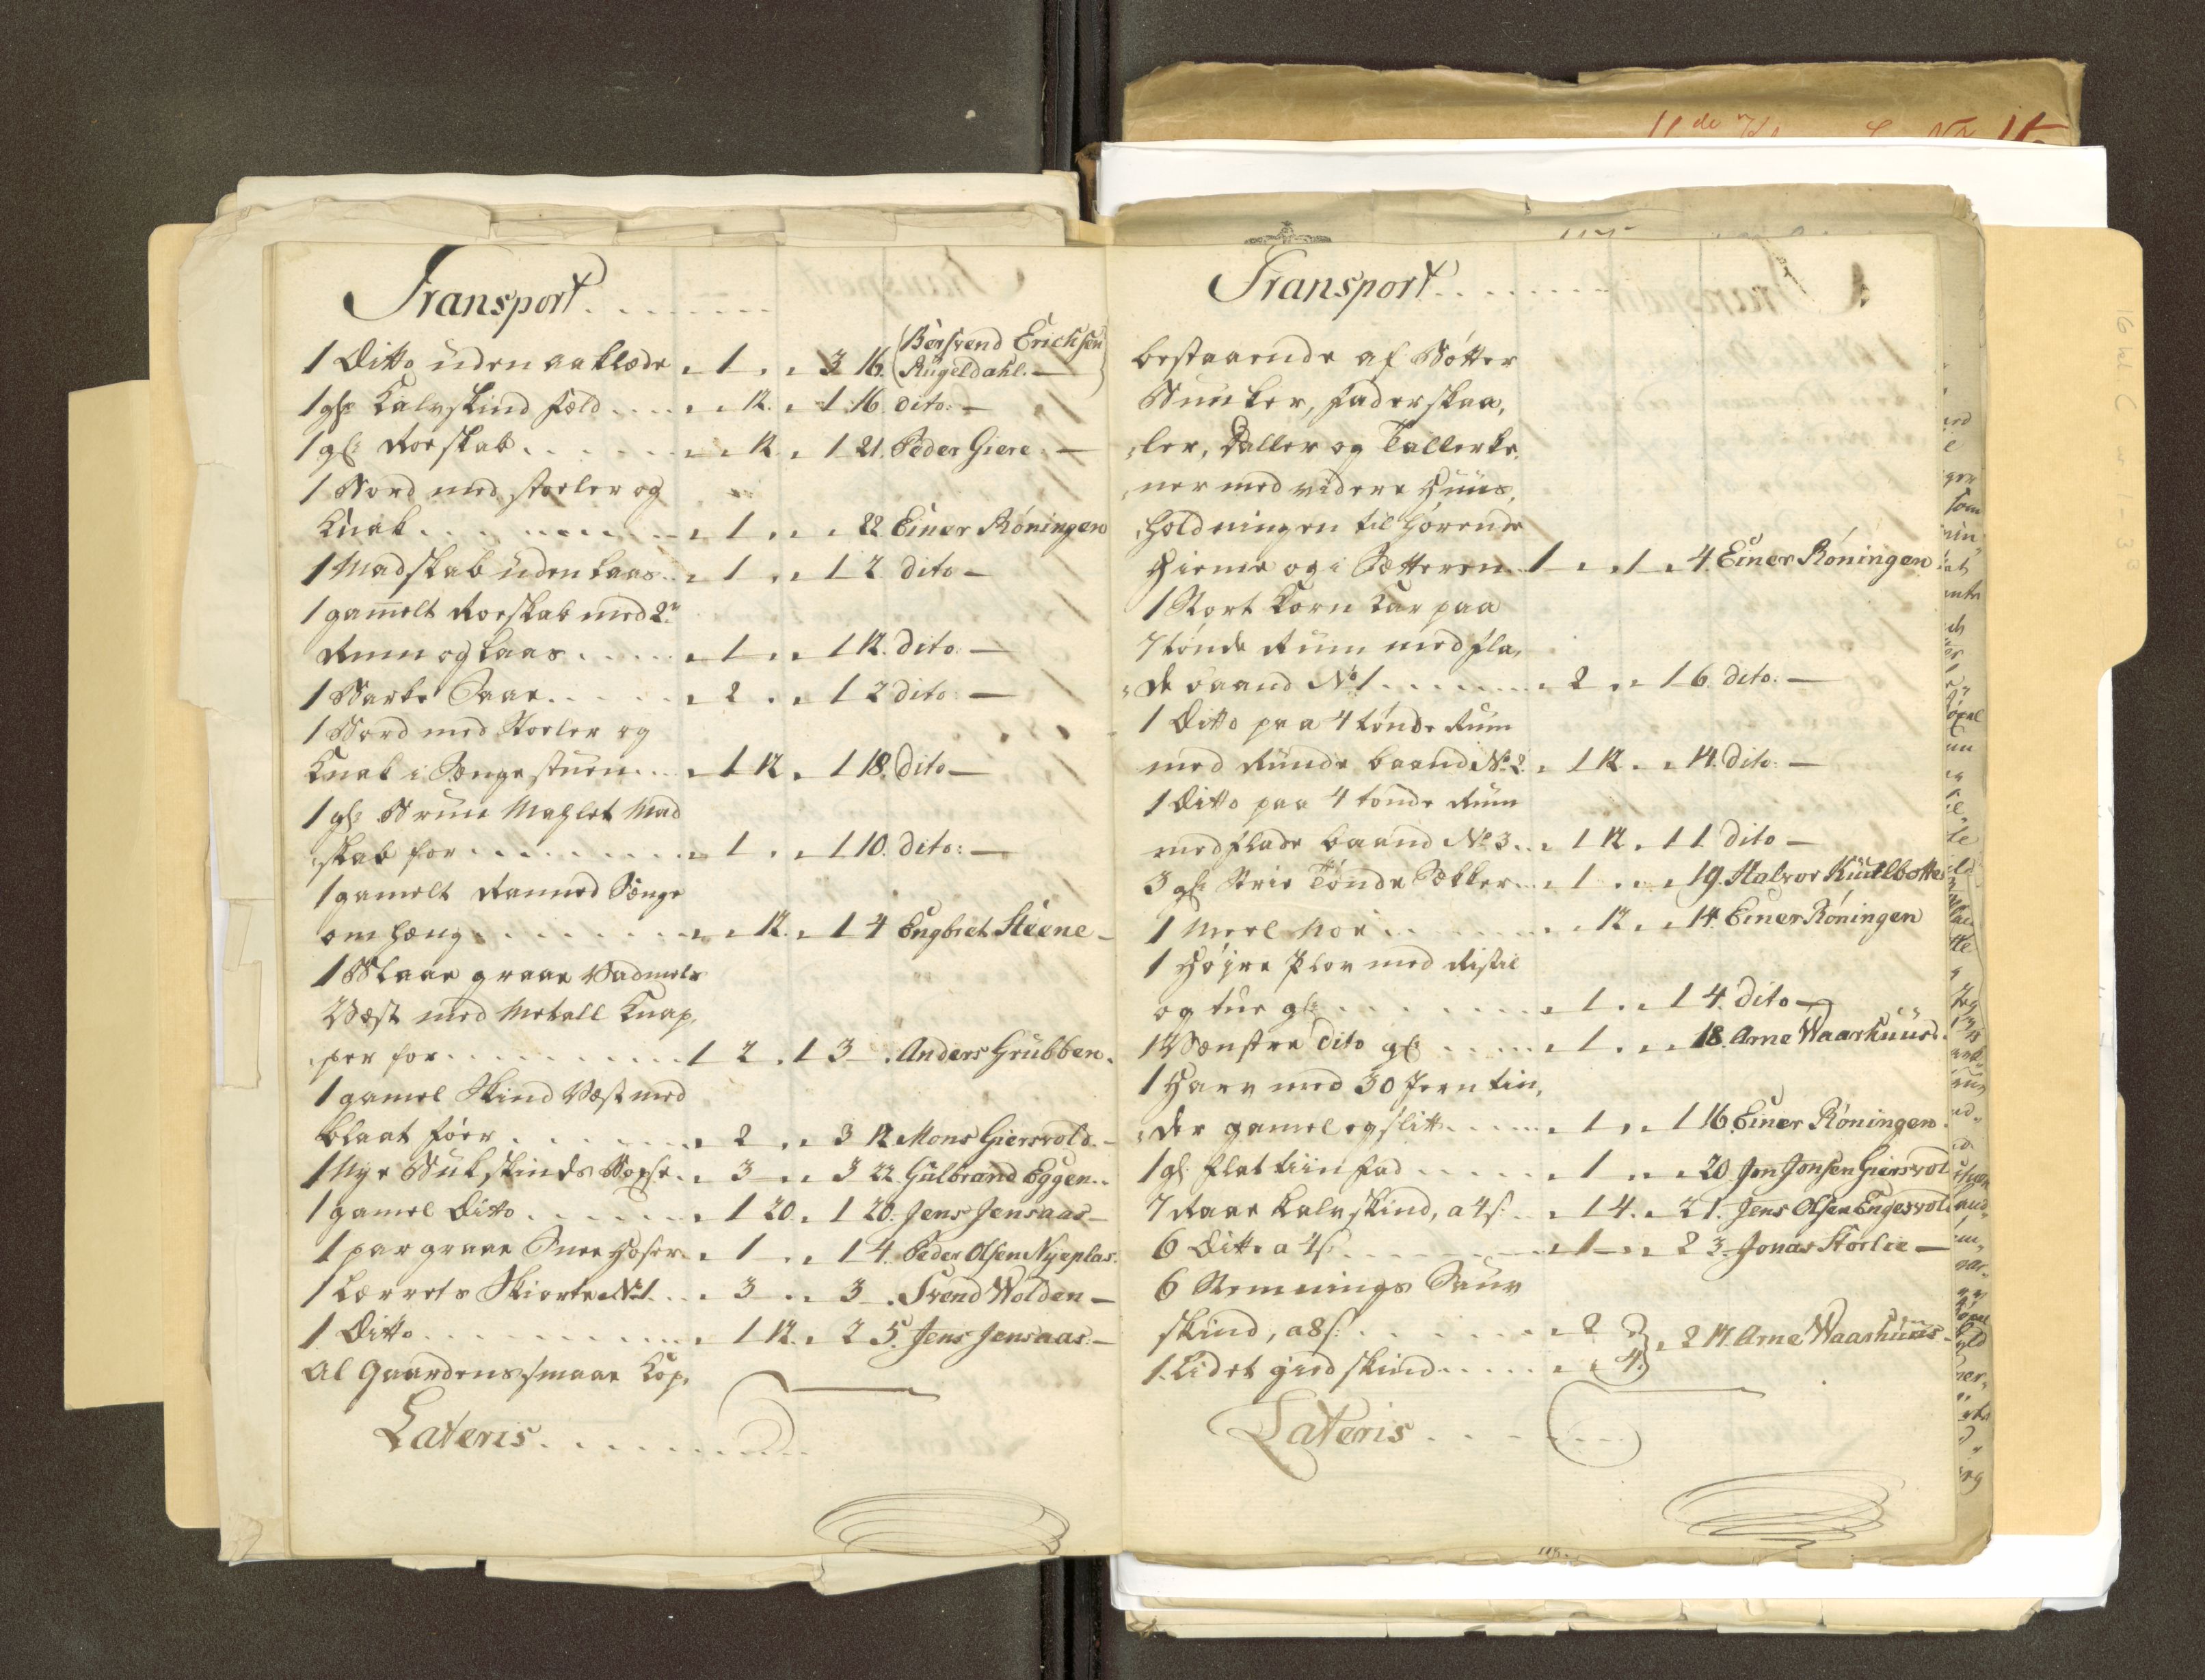 Transport . . . . . . . .
1 Ditto uden aaklæde „ 1 „ „ 3 16. (Bersvend Erichsen
Rugeldahl. —)
1 gl: Kalvskind fæld . . . . „ „ 12. „ 1 16. dito: —
1 gl: Roeskab . . . . . . „ „ 12. „ 1 21. Peder Giere: —
1 Bord med stoeler og
Knak . . . . . . . . . . „ 1 „ „ „ 22 Einer Röningen
1 Madskab uden laas . . „ 1 „ „ 1 2 dito —
1 gamelt Roeskab med 2:
Rum og laas . . . . . „ 1 „ „ 1 12. dito: —
1 Starke Saae . . . . . „ 2 „ „ 1 2 dito: —
1 Bord med Stoeler og
Knak i Sængestuen . . . „ 1 12 „ 1 18. dito —
1 gl: Bruun Mahlet Mad
skab for . . . . . . . . . „ 1 „ „ 1 10. dito: —
1 gamelt Ranned Sænge
omhæng . . . . . . . . „ „ 12. „ 1 4 Engbret Stéene —
1 Blaae graae Vadmels
Væst med Metall Knap,
„per for . . . . . . . . . . . 1 2 „ 1 3 — . Anders Grubben.
1 gamel Skind Væst med
blaat foer . . . . . . . . „ 2 „ „ 3 12 Mons Giersvold. —
1 Nye Bukskinds Boxse . . „ 3 „ „ 3 22 Gulbrand Eggen . .
1 gamel Ditto . . . . . . . „ 1 20. „ 1 20. Jens Jensaas —
1 par graae Snee Hoser . „ 1 „ „ 1 4. Peder Olsen Nyeplas.
1 Lærrets Skiorte No 1. . . „ 3 „ „ 3 — . Svend Wolden —
1 Ditto . . . . . . . . . . . „ 1 12. „ 2 5. Jens Jensaas: —
Al Gaardens smaae Kop,
Lateris . . . . . . . . . . .
Transport . . . . . . . .
bestaaende af Bötter
Bunker, faderskaa,
„ler, Daller og Tallerke,
„ner med videre Huus,
„holdningen til hörende
Hieme og i Sætteren . 1 „ „ 1 „ 4. Einer Röningen
1 Stort korn kar paa
7 tönde Rum med fla,
„de baand No 1 . . . . . . . „ 2 „ „ 1 6. dito: —
1 Ditto paa 4 tönde Rum
med Runde baand No 2. „ 1 12 . „ 14. dito: —
1 Ditto paa 4 tönde Rum
med flade baand No 3. . „ 1 12. „ 1 1 dito —
3 gl: Strie Tönde Sækker . . „ 1 . „ „ 19. Halvor Küulbotte
1 Meel . . . . . . . . „ „ 12 . „ 14. Einer Röningen
1 Höyre Plov med Ristil
og tue gl: . . . . . . . . . „ 1 . „ 1 4. dito —
1 Vænstre dito gl: . . . . . „ 1 . „ „ 18. Arne Waarhuus.
1 Harv med 30 Jern tin,
„der gamel og slitt . . . . . „ 1 „ „ 1 16. Einer Röningen.
1 gl: flat tiin fad . . . . . „ 1 „ „ „ 20. Jon Jonsen Giersvol
7 Raae kalvskind, a 4 s: . . „ 1 4. „ 2 1. Jens Olsen Engesvol
6 Ditto a 4 s: . . . . . . . „ 1 „ „ 2 3. Jonas Storlie —
6 Stemnings Saue
skind, a 8 s: . . . . . . . „ 2 } „ 2 17. Arne Waarhuus —
1 Lidet giedskind . . . . . „ „ 4. }
Lateris . . . . . . .